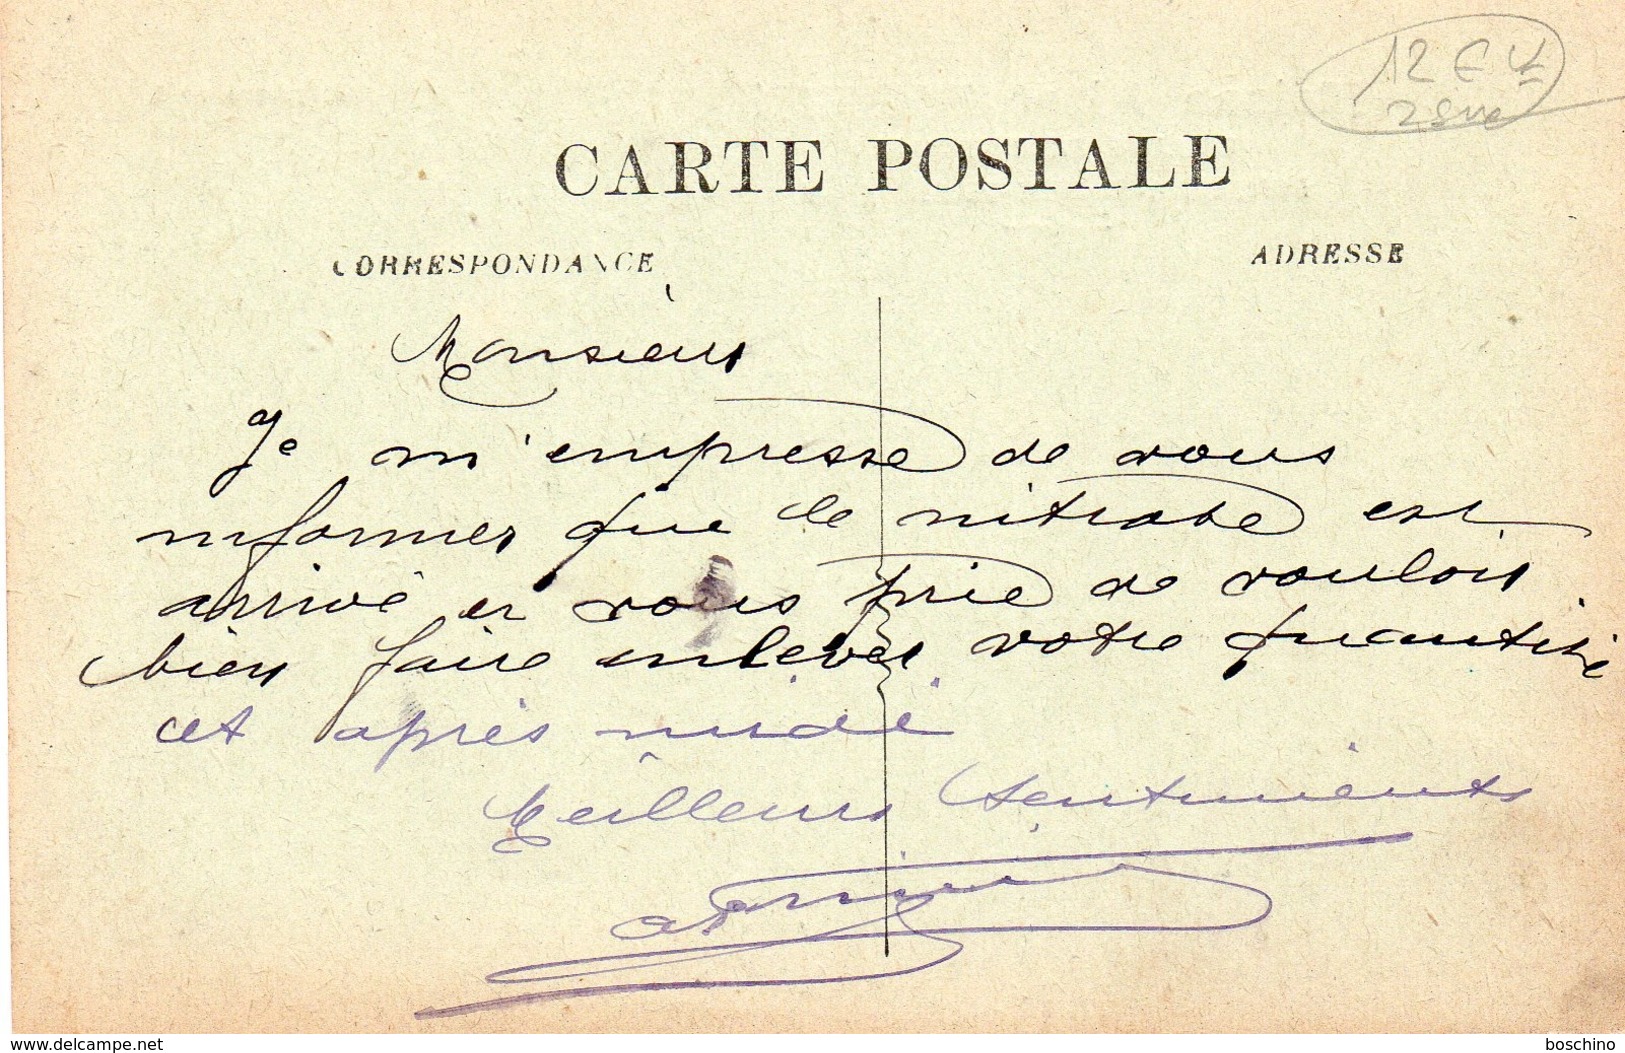 12 €
CARTE POSTALE
CORRESPONDANCE
ADRESSE
Monsieur
Je m'empresse de vous
informer que le nitrate est
arrivé et vous prie de vouloir
bien faire enlever votre quantité
cet après midi
Meilleurs sentiments
www.delcampe.net
boschino